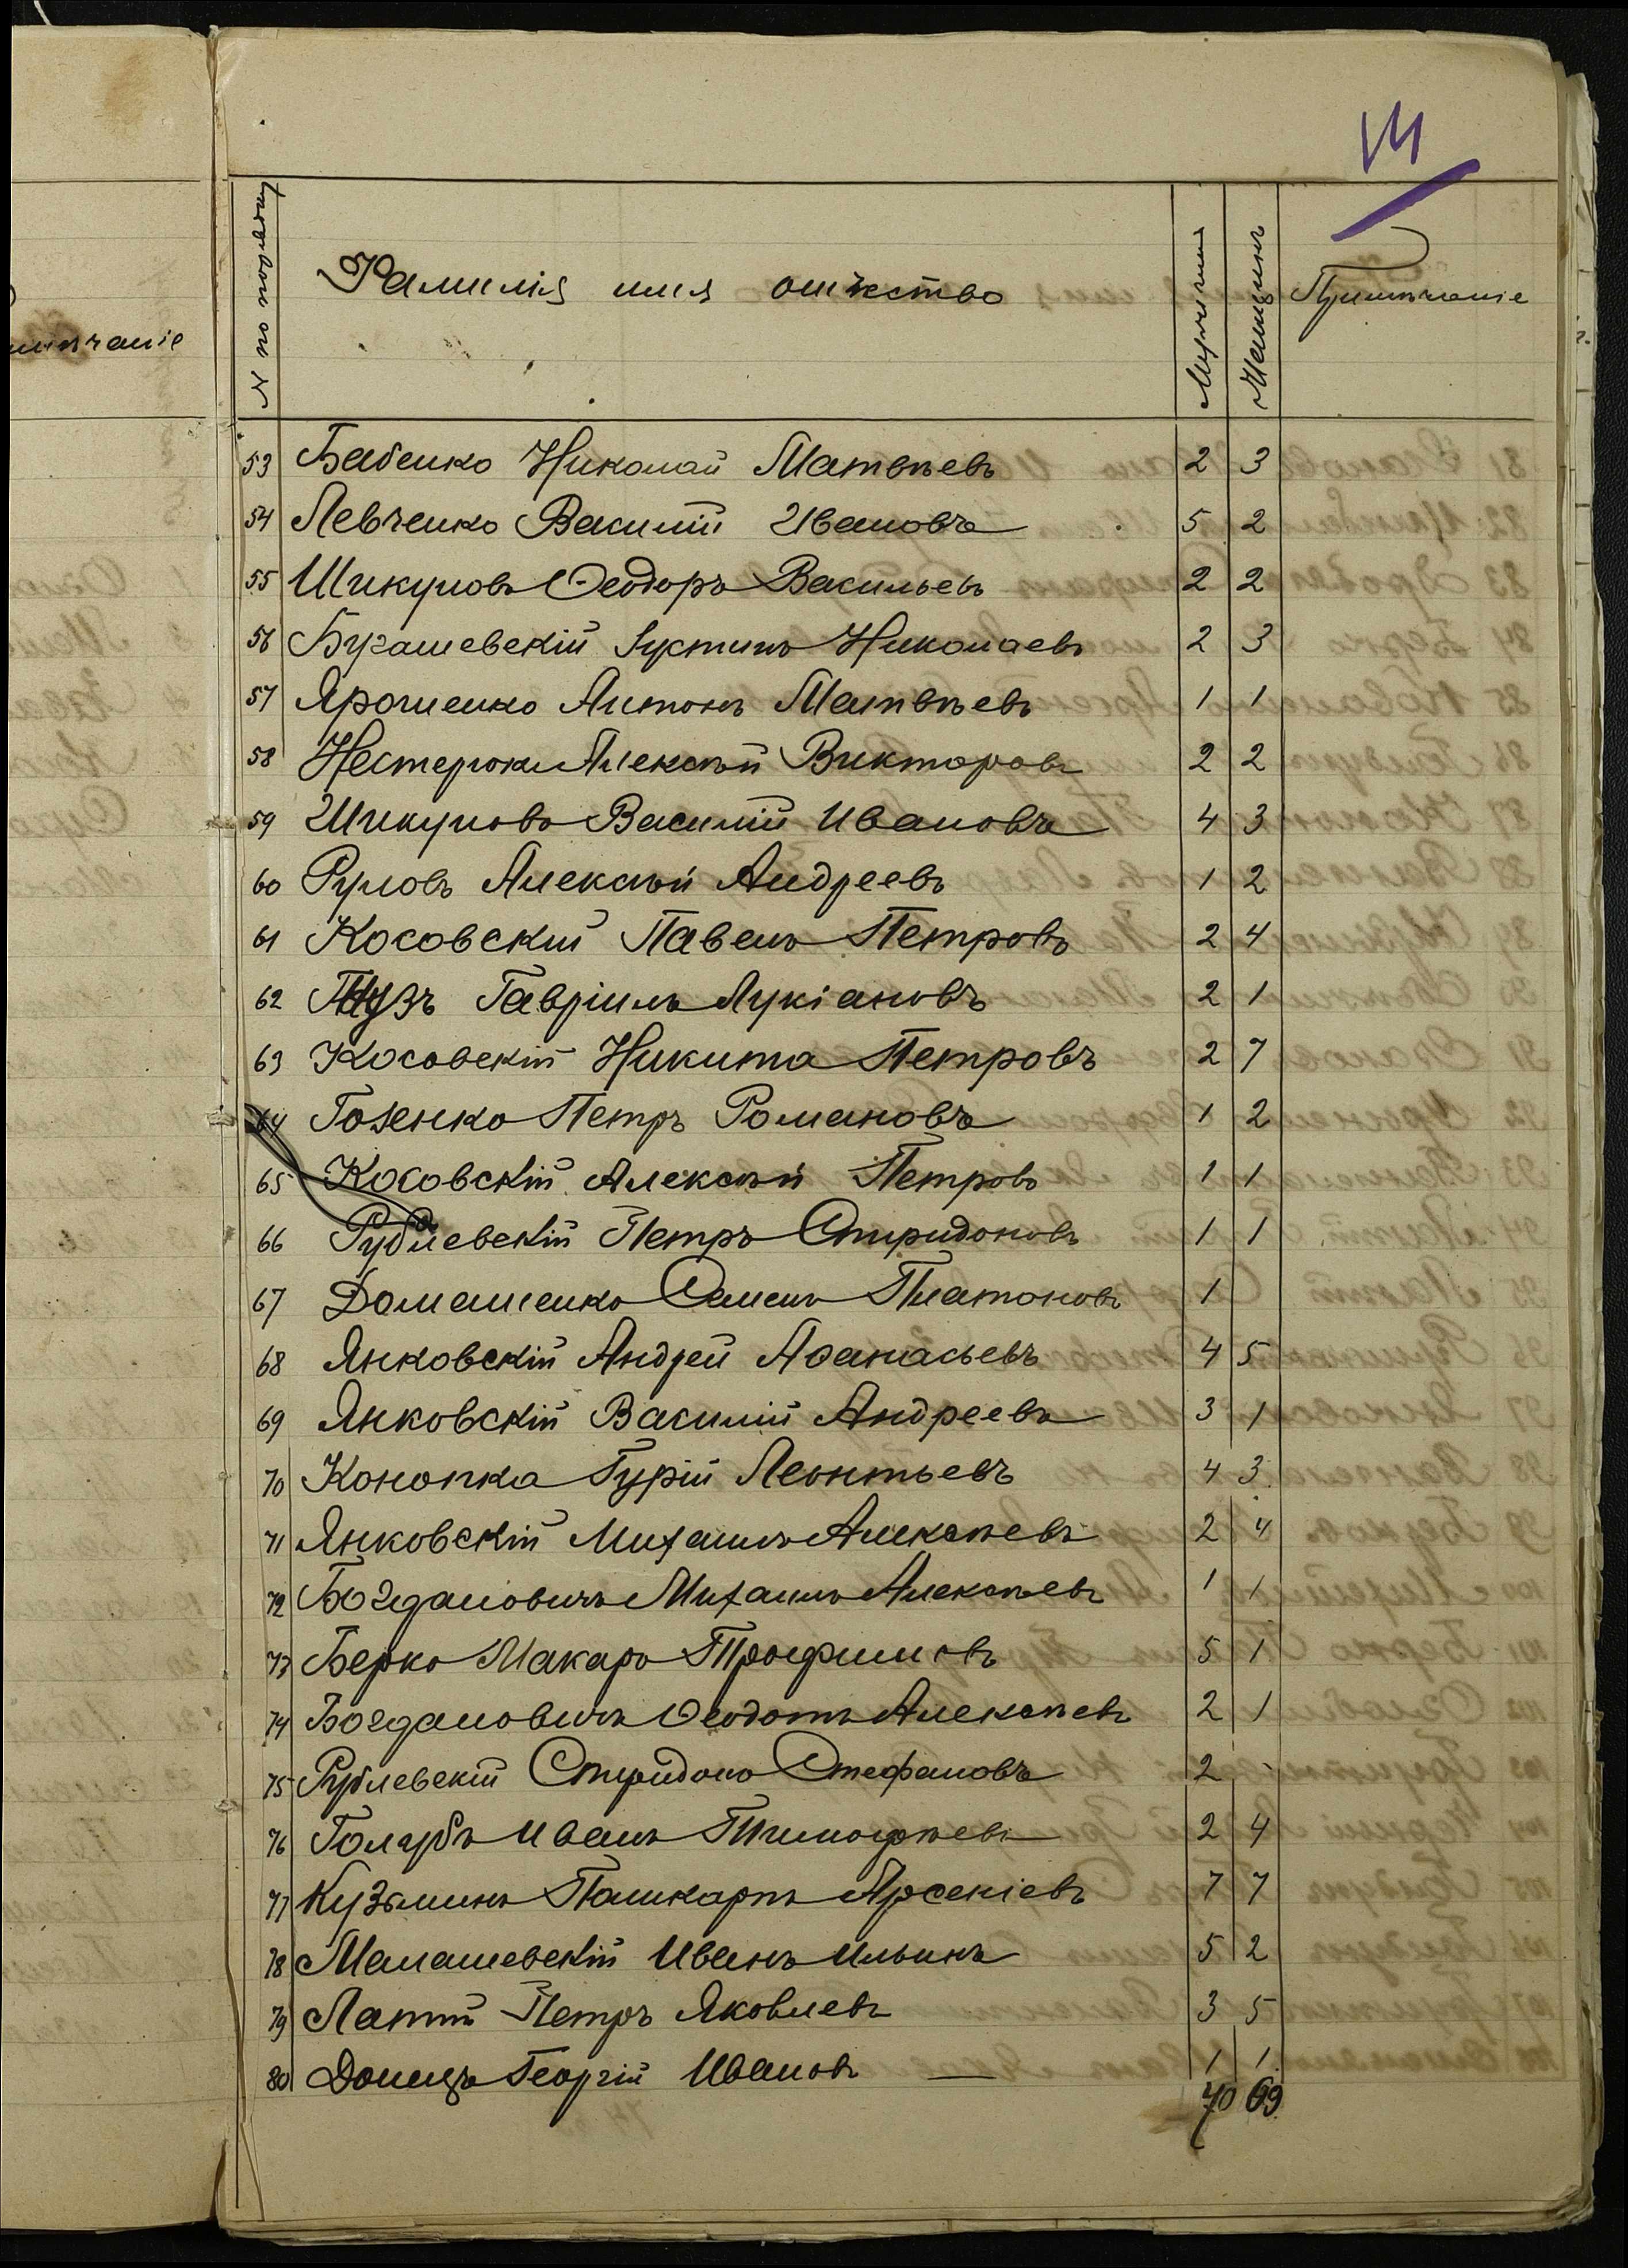 14
№ по порядку Фамилія имя отчество Мужчинъ Женщинъ Примѣчаніе
53 Бабенко Николай Матвѣевъ 2 3
54 Левченко Василій Ивановъ 5 2
55 Шикуловъ Ѳеодоръ Васильевъ 2 2
56 Бугашевскій Іустинъ Николаевъ 2 3
57 Ярошенко Антонъ Матвѣевъ 1 1
58 Нестерюкъ Алексѣй Викторовъ 2 2
59 Шикуловъ Василій Ивановъ 4 3
60 Руловъ Алексѣй Андреевъ 1 2
61 Косовскій Павелъ Петровъ 2 4
62 Гавріилъ Лукіановъ 2 1
63 Косовскій Никита Петровъ 2 7
64 Гозенко Петръ Романовъ 1 2
65 Косовскій Алексѣй Петровъ 1 1
66 Рублевскій Петръ Спиридоновъ 1 1
67 Домашенко Семенъ Платоновъ 1
68 Янковскій Андрей Аѳанасьевъ 4 5
69 Янковскій Василій Андреевъ 3 1
70 Конопка Гурій Леонтьевъ 4 3
71 Янковскій Михаилъ Алексѣевъ 2 4
72 Богдановичъ Михаилъ Алексѣевъ 1 1
73 Берко Макаръ Трофимовъ 5 1
74 Богдановичъ Ѳеодотъ Алексѣевъ 2 1
75 Рублевскій Спиридонъ Стефановъ 2 -
76 Голубъ Иванъ Тимофѣевъ 2 4
77 Кузьминъ Полікарпъ Арсеніевъ 7 7
78 Малашевскій Иванъ Ильинъ 5 2
79 Лаптій Петръ Яковлевъ 3 5
80 Донецъ Георгій Ивановъ — 1 1
70 69